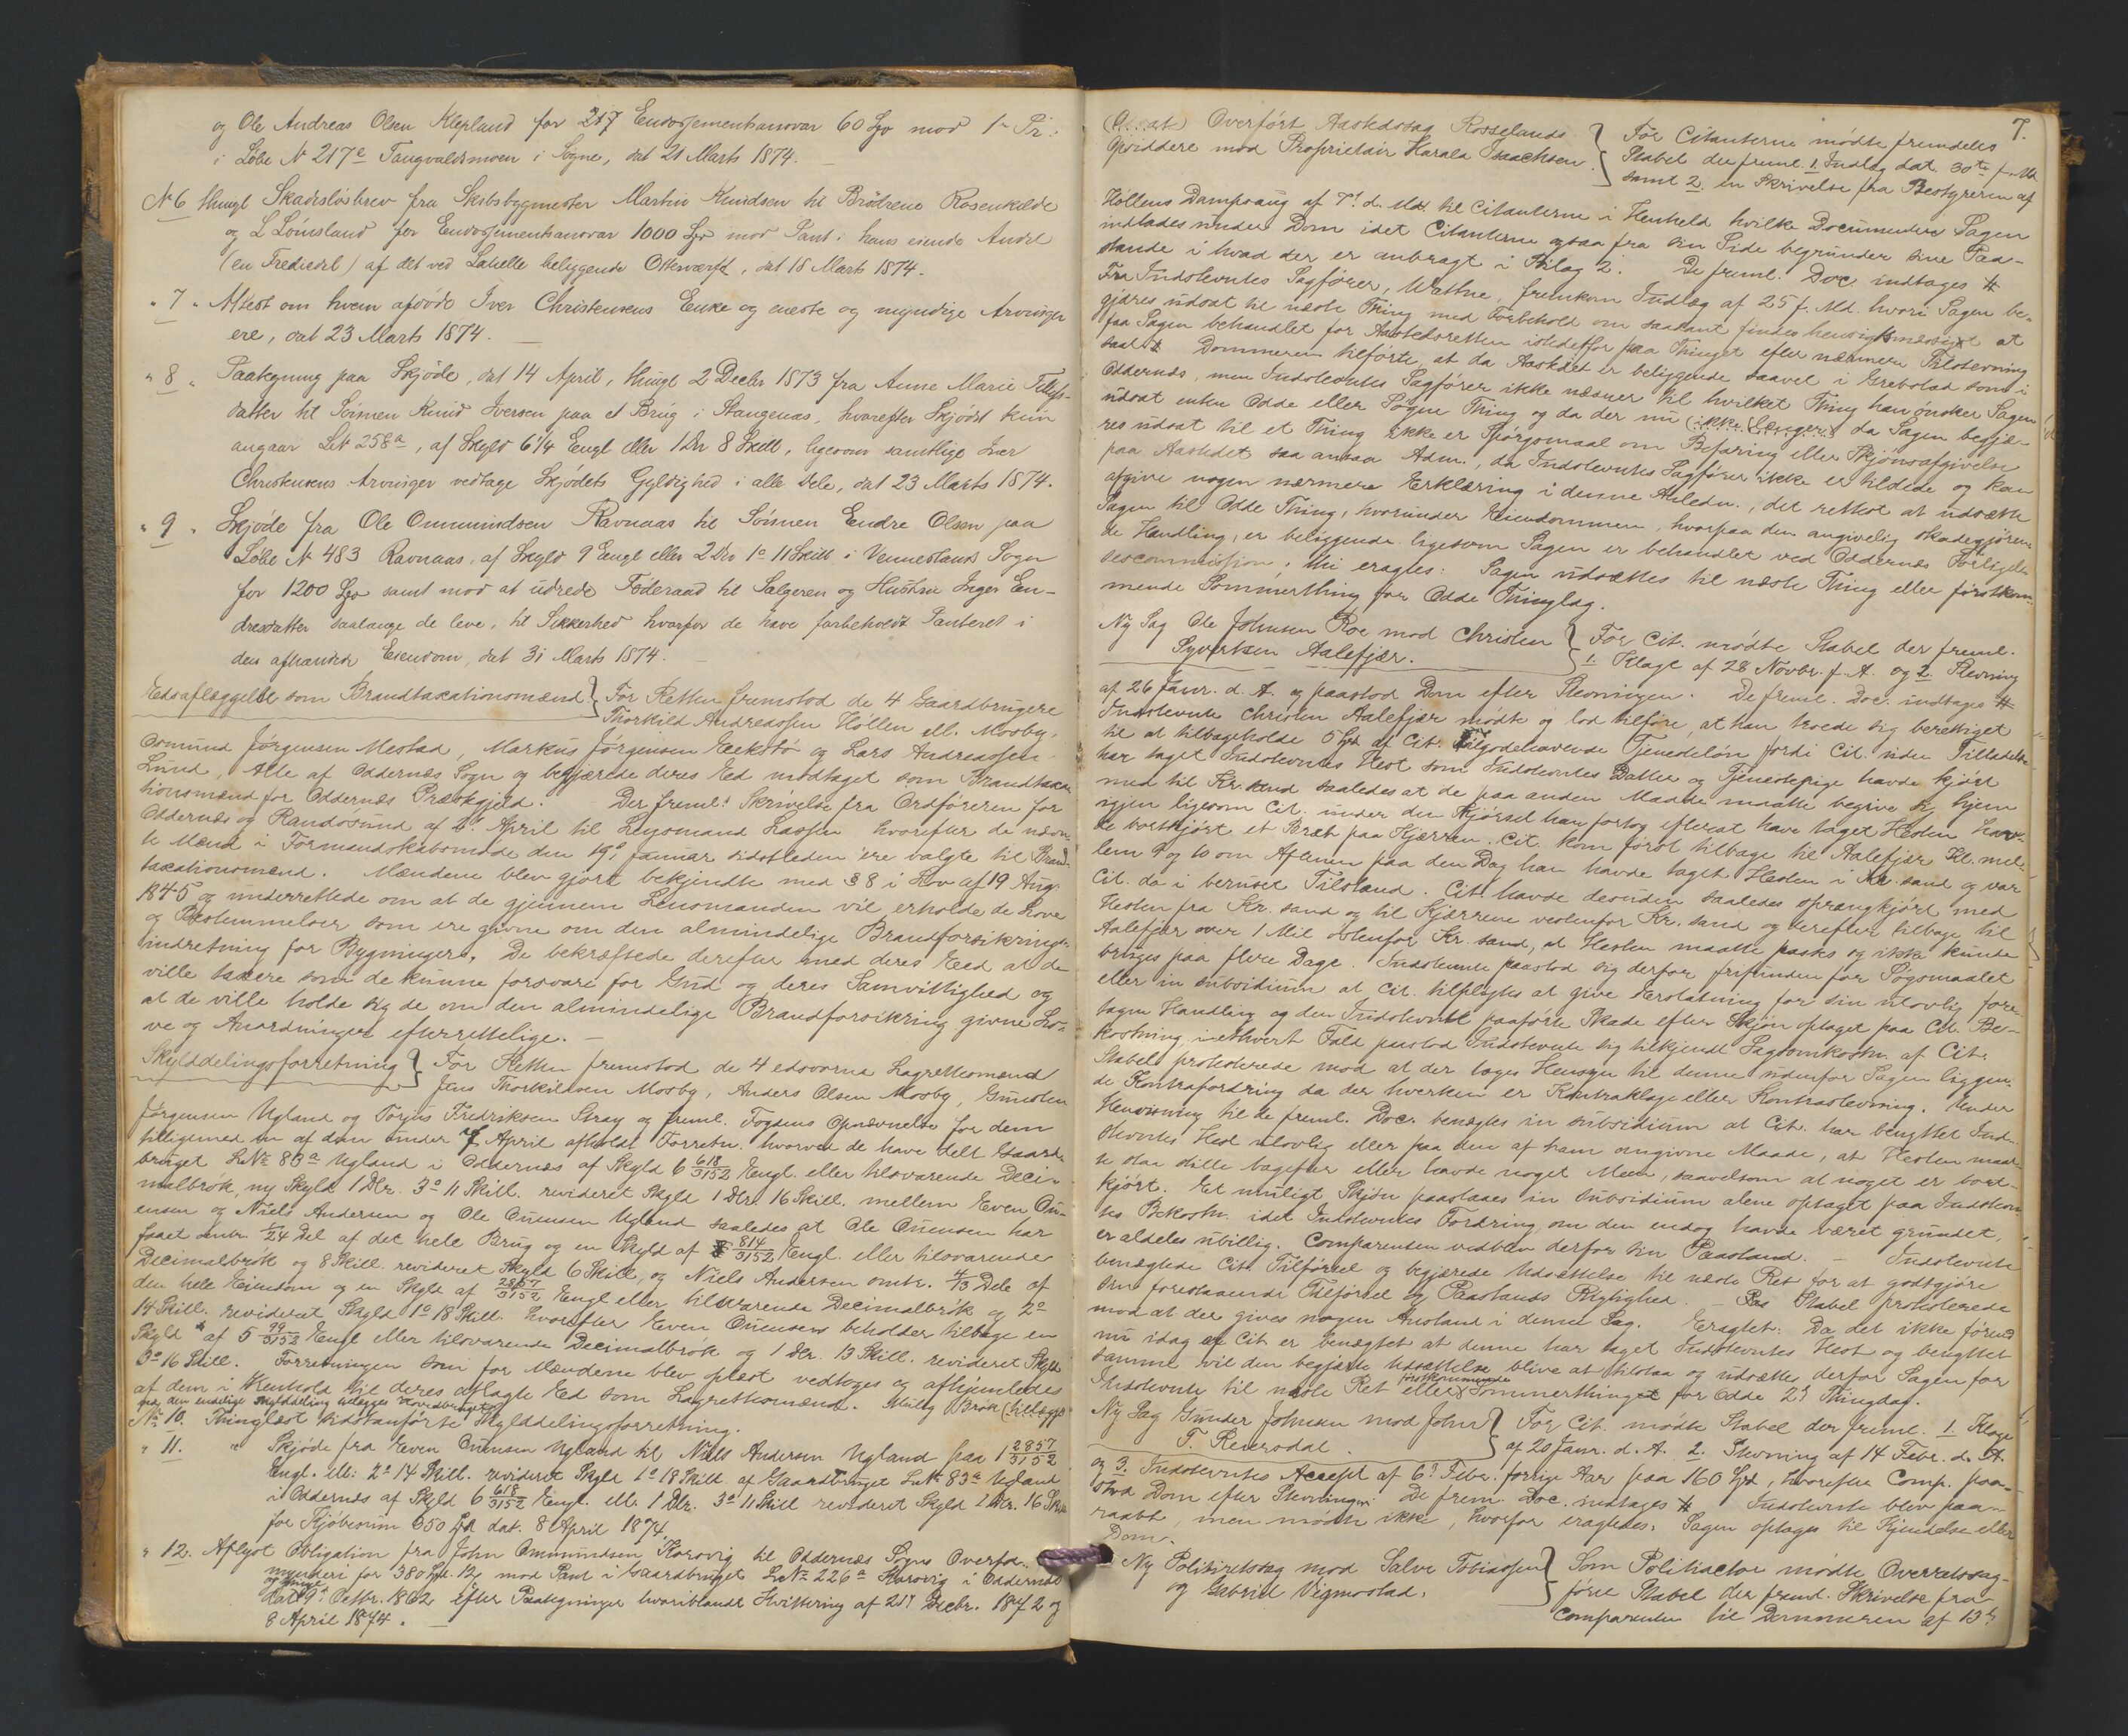 og Ole Andreas Olsen Klepland for 217 Endossementsansvar 60 Spd mod 1ste Pr.
i Løbe N 217c Tangvaldsmoen i Søgne, dat 21 Marts 1874.
N 6 thingl Skadesløsbrev fra Skibsbygmester Martin Knudsen til Brødrene Rosenkilde
og L Lømsland for Endossementsansvar 1000 Spd mod Pant i hans eiende Andel
(en Trediedel) af det ved Lahelle beliggende Otteværft, dat 18 Marts 1874.
" 7 " Attest om hvem afdøde Iver Christensens Enke og eneste og myndige Arvinger
ere, dat 23 Marts 1874.
" 8 " Paategning paa Skjøde, dat 14 April, thingl 2 Decbr 1873 fra Anne Marie Tellefs-
datter til Sønnen Knud Iversen paa et Brug i Stangenæs, hvorefter Skjødet kun
angaar LN 258a, af Skyld 6 1/4 Engl eller 1 Dlr 8 Skill, ligesom samtlige Iver
Christensens Arvinger vedtage Skjødets Gyldighed i alle Dele, dat 23 Marts 1874.
" 9 " Skjøde fra Ole Ommundsen Ravnaas til Sønnen Endre Olsen paa
Løbe N 483 Ravnaas, af Skyld 9 Engl eller 2 Dlr 1o 11 Skill i Vennesland Sogn
for 1200 Spd samt mod at udrede Føderaad til Sælgeren og Hustru Inger En-
dresdatter saalænge de leve, til Sikkerhed hvorfor de have forbeholdt Panteret i
den afhændede Eiendom, dat 31 Marts 1874.
Edsaflæggelse som Brandtaxationsmænd. } For Retten fremstod de 4 Gaardbrugere
Thorkild Andreassen Høllen ell. Mosby,
Osmund Jørgensen Mestad, Markus Jørgensen Eekstø og Lars Andreassen
Lund, Alle af Oddernæs Sogn og begjærede deres Eed modtaget som Brandtaxa-
tionsmænd for Oddernæs Præstegjeld. Der freml. Skrivelse fra Ordføreren for
Oddernæs og Randøsund af April til Lensmand Lassen hvorefter de nævn-
te Mænd i Formandskabsmøde den 19de Januar sidstleden ere valgte til Brand-
taxationsmænd. Mændene blev gjort bekjendte med § 8 i Lov af 19 Aug.
1845 og underrettede om at de gjennem Lensmanden vil erholde de Love
og Bestemmelser som ere givne om den almindelige Brandforsikrings-
indretning for Bygninger. De bekræftede derefter med deres Eed at de
ville taxere som de kunne forsvare for Gud og deres Samvittighed og
at de ville holde sig de om den almindelige Brandforsikring givne Lo-
ve og Anordninger efterrettelige.
Skylddelingsforretning } For Retten fremstod de 4 edsvorne Lagrettesmænd
Jens Thorkildsen Mosby, Anders Olsen Mosby, Gunsten
Jørgensen Ugland og Torjus Fredriksen Stray og freml. Fogdens Opnævnelse for dem
tilligemed en af dem under 7 April afholdt Forretn. hvorved de have delt Gaard-
bruget LNo 83a Ugland i Oddernæs af Skyld 6 618/3152 Engl. eller tilsvarende Deci-
malbrøk, ny Skyld 1 Dlr. 3o 11 Skill. revideret Skyld 1 Dlr. 16 Skill. mellem Even On-
ensen og Niels Andersen og Ole Onensen Ugland saaledes at Ole Onensen har
faaet omtr. 1/24 Del af det hele Brug og en Skyld af 814/3152 Engl. eller tilsvarende
Decimalbrøk og 8 Skill. revideret Skyld 6 Skill, og Niels Andersen omtr. 4/13 Dele af
den hele Eiendom og en Skyld af 2857/3152 Engl eller tilsvarende Decimalbrøk og 2o
14 Skill. revideret Skyld 1o 18 Skill. hvorefter Even Onensen beholder tilbage en
Skyld af 5 99/3152 Engl eller tilsvarende Decimalbrøk og 1 Dlr. 13 Skill. revideret Skyld
3o 16 Skill. Forretningen som for Mændene blev oplæst vedtoges og afhjemledes
af dem i Henhold til deres aflagte Eed som Lagrettesmænd. Mulig Brøk (tillægges
ved den endelige Skylddeling tillægges Hovedbruget
No 10. Thinglæst sidstanførte Skylddelingsforretning.
" 11. " Skjøde fra Even Onensen Ugland til Niels Andersen Ugland paa 1 2857/3152
Engl. ell: 2o 14 Skill. revideret Skyld 1o 18 Skill af Gaardbruget LNo 83a Ugland
i Oddernæs af Skyld 6 618/3152 Engl. ell. 1 Dlr. 3o 11 Skill revideret Skyld 1 Dlr. 16 Skill
for Kjøbesum 350 Spd dat. 8 April 1874.
" 12. Aflyst Obligation fra John Ommundsen Korsvig til Oddernæs Sogns Overfor-
mynderi for 380 Spd. 12 mod Pant i Gaardbruget LNo 226a Korsvig i Oddernæs
og thingl
dat 9de Octbr. 1862 efter Paategninger hvoriblandt Kvittering af 21de Decbr. 1872 og
8 April 1874.
7.
Overført Aastedssag Rosselands } For Citanterne mødte fremdeles
Opsiddere mod Proprietair Harald Isaachsen } Stabel der freml. 1. Indlæg dat. 30te f. M.
samt 2. en Skrivelse fra Bestyreren af
Høllens Dampsaug af 7de d. Md. til Citanterne i Henhold hvilke Documenter Sagen
indlades under Dom idet Citanterne ogsaa fra sin Side begrunder sine Paa-
stande i hvad der er anbragt i Bilag 2. De freml. Doc. indtages #
Fra Indstevntes Sagfører, Wattne, fremkom Indlæg af 25 f. Md. hvori Sagen be-
gjæres udsat til næste Thing med Forbehold om saafremt findes hensigtsmæssigt at
faa Sagen behandlet for Aastedsretten istedetfor paa Thinget efter nærmere Tilstevning
saal # Dommeren tilførte, at da Aastedet er beliggende saavel i Grebstad som i
Oddernæs, men Indstevntes Sagfører ikke nævner til hvilket Thing han ønsker Sagen
udsat enten Odde eller Søgne Thing og da der nu (ikke længer) da Sagen begjæ-
res udsat til et Thing ikke er Spørgsmaal om Befaring eller Skjønsafgivelse
paa Aastedet saa ansaa Adm., da Indstevntes Sagfører ikke er tilstede og kan
afgive nogen nærmere Erklæring i denne Anledn., det rettest at udsætte
Sagen til Odde Thing, hvorunder Eiendommen, hvorpaa den angivelig skadegjøren-
de Handling, er beliggende ligesom Sagen er behandlet ved Oddernæs Forligel-
sescommission; thi eragtes: Sagen udsættes til næste Thing eller førstkom-
mende Sommerthing for Odde Thinglag.
Ny Sag Ole Johnsen Roe mod Christen } For Cit. mødte Stabel der freml.
Syvertsen Aalefjær. } 1. Klage af 28 Novbr. f. A. og 2. Stevning
af 26 Janr. d. A. og paastod Dom efter Stevningen. De freml. Doc. indtages #
Indstevnte Christen Aalefjær mødte og lod tilføre, at han troede sig berettiget
til at tilbageholde 5 Spd af Cit. tilgodehavende Tjenesteløn fordi Cit. uden Tilladelse
har taget Indstevntes Hest som Indstevntes Datter og Tjenestepige havde kjørt
med til Kr.sand saaledes at de paa anden Maade maatte begive sig hjem
igjen ligesom Cit. under den Kjørsel han foretog efterat have taget Hesten hav-
de bortkjørt et Bræt paa Kjærren. Cit. kom først tilbage til Aalefjær Kl. mel-
lem 9 og 10 om Aftenen paa den Dag han havde taget Hesten i Kr.sand og var
Cit. da i beruset Tilstand. Cit. havde desuden saaledes sprængkjørt med
Hesten fra Kr.sand og til Kjærrene vestenfor Kr.sand og derefter tilbage til
Aalefjær over 1 Mil østenfor Kr.sand, at Hesten maatte passes og ikke kunde
bruges paa flere Dage. Indstevnte paastod sig derfor frifunden for Søgsmaalet
eller in subsidium at Cit. tilpligtes at give Erstatning for sin ulovlig fore-
tagne Handling og den Indstevnte paaførte Skade efter Skjøn optaget paa Cit. Be-
kostning, i ethvert Fald paastod Indstevnte sig tilkjendt Sagsomkostn. af Cit.
Stabel protesterede mod at der toges Hensyn til denne udenfor Sagen liggen-
de Kontrafordring da der hverken er Kontraklage eller Kontrastevning. Under
Henvisning til de freml. Doc. benægtes in subsidium at Cit. har benyttet Ind-
stevntes Hest ulovlig eller paa den af ham angivne Maade, at Hesten maat-
te staa stille bagefter eller havde noget Meen, saavelsom at noget er bort-
kjørt. Et muligt Skjøn paastaaes in subsidium alene optaget paa Indstevn-
tes Bekostn. idet Indstevntes Fordring, om den endog havde været grundet,
er aldeles ubillig. Comparenten vedblev derfor sin Paastand. – Indstevnte
benægtede Cit. Tilførsel og begjærede Udsættelse til næste Ret for at godtgjøre
sin forestaaende Tilførsel og Paastands Rigtighed. – Stabel protesterede
mod at der gives nogen Anstand i denne Sag. Eragtet: Da det ikke førend
nu idag af Cit. er benægtet at denne har taget Indstevntes Hest og benyttet
samme vil den begjærte Udsættelse blive at tilstaa og udsættes derfor Sagen for
førstkommende
Indstevnte til næste Ret eller Sommerthinget for Odde 2den Thingdag.
Ny Sag Gunder Johnsen mod John } For Cit. mødte Stabel der freml. 1. Klage
T. Reiersdal. } af 20 Janr. d. A. 2. Stevning af 14 Febr. d. A.
og 3. Indstevntes Accept af 6te Febr. forrige Aar paa 160 Spd, hvorefter Comp. paa-
stod Dom efter Stevningen. De frem. Doc. indtages # Indstevnte blev paa-
raabt, men mødte ikke, hvorfor eragtedes: Sagen optages til Kjendelse eller
Dom.
Ny Politiretssag mod Salve Tobiassen } Som Politiactor mødte Overretssag-
og Gabriel Vigmostad. } fører Stabel der fremL. Skrivelse fra
Comparenten til Dommeren af 13de